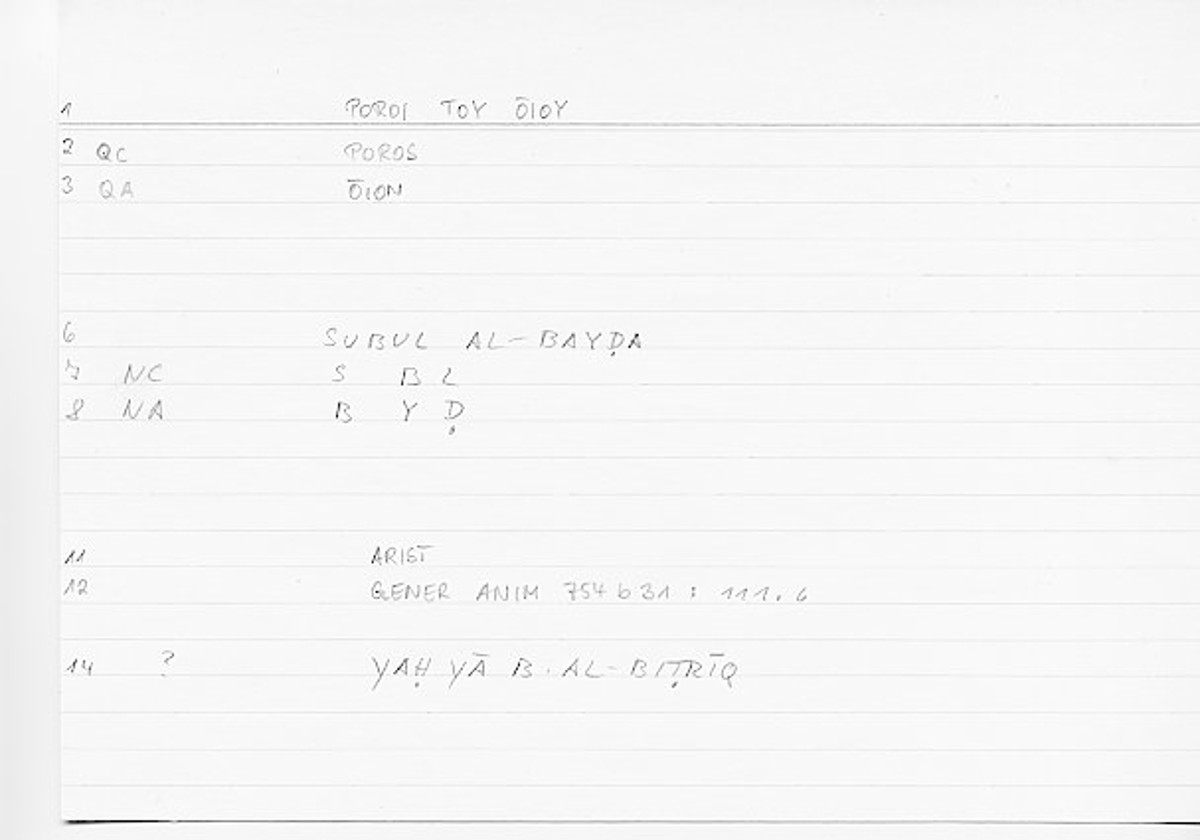 1 POROI TOY ŌIOY
2 QC POROS
3 QA ŌION
6 SUBUL AL-BAYḌA
7 NC S B L
8 NA B Y Ḍ
11 ARIST
12 GENER ANIM 754 b 31 : 111.6
14 ? YAḤYĀ B. AL-BIṬRĪQ